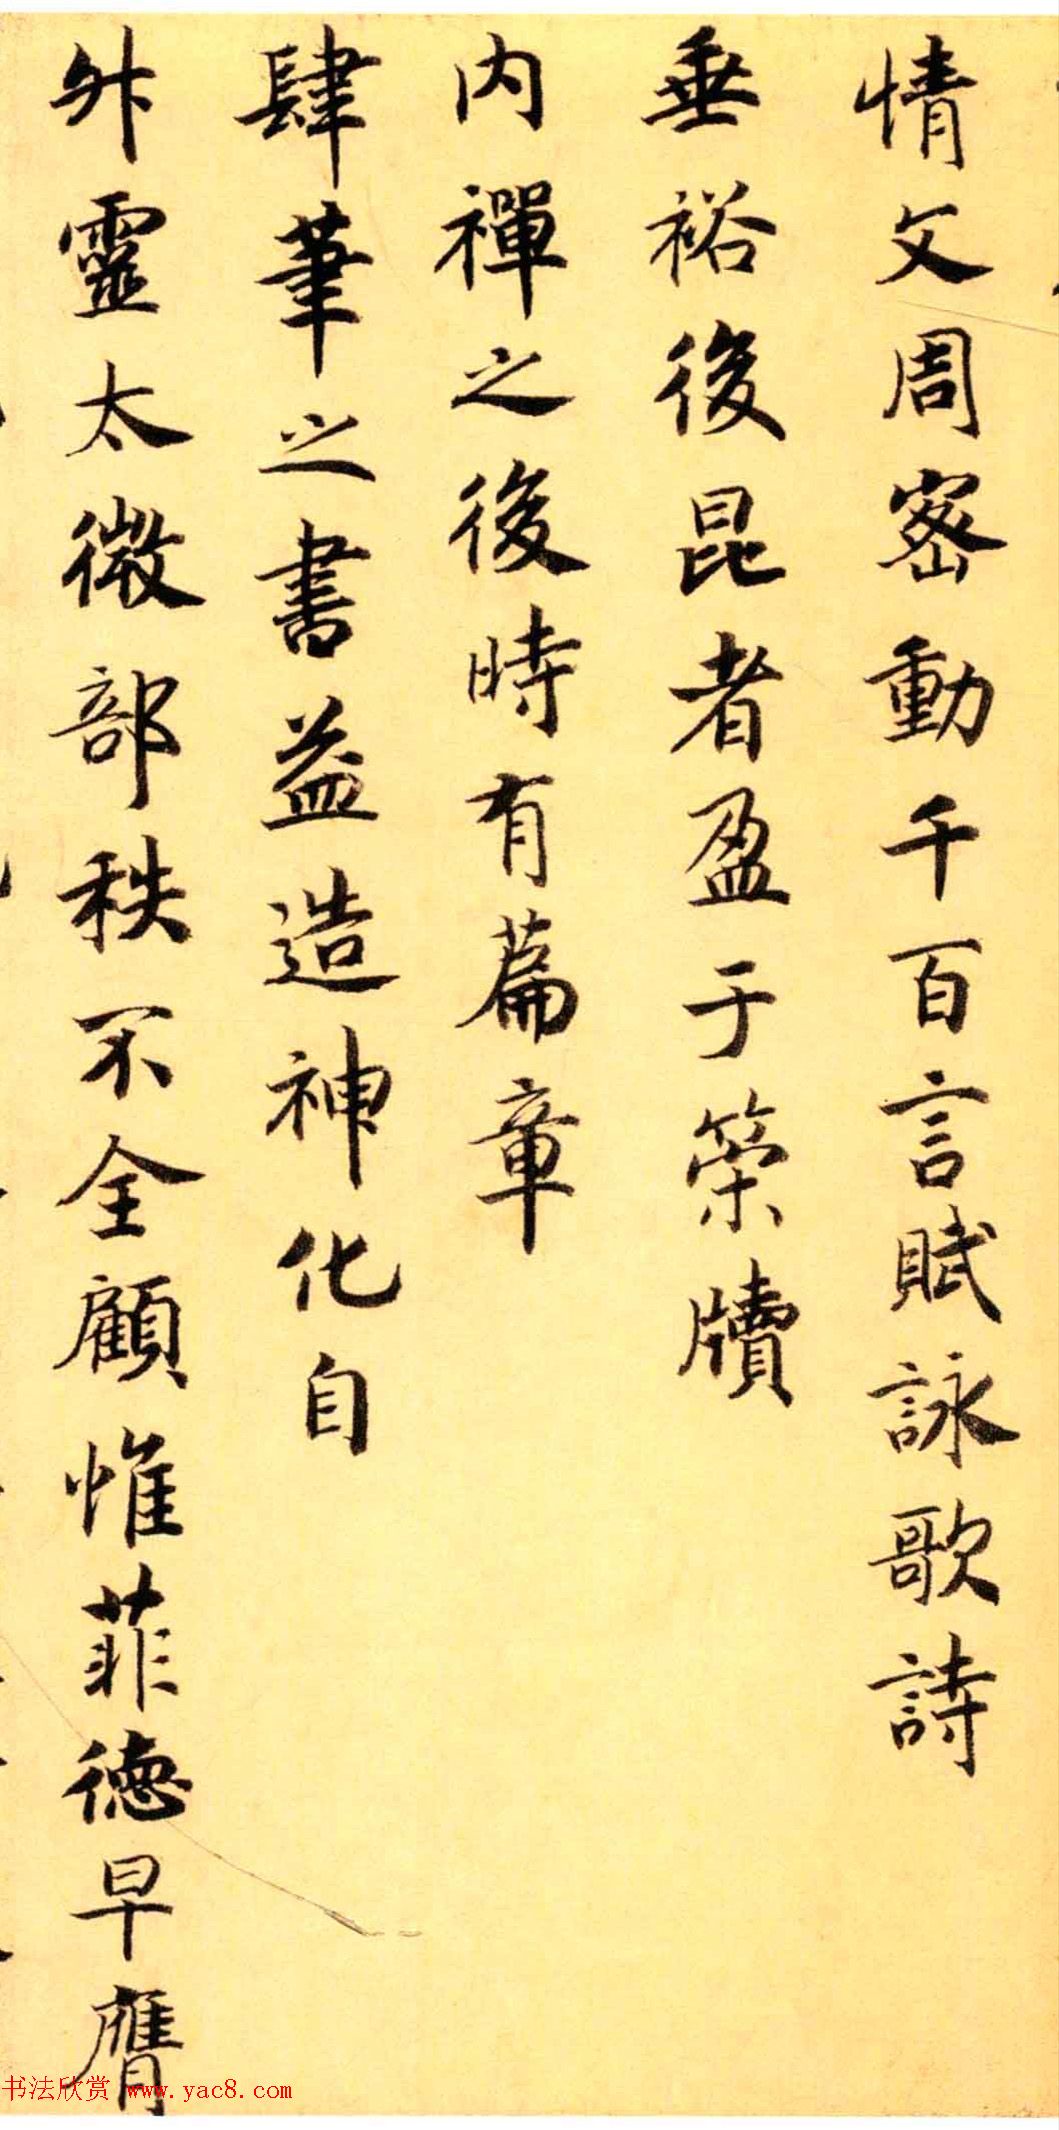 情文周密動千百言賦詠歌詩
垂裕後昆者盈于策牘
内禪之後時有篇章
肆筆之書益造神化自
升靈太微部秩不全顧惟菲德早膺
书法欣赏 www.yac8.com